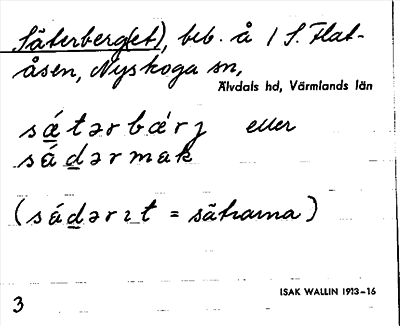 Säterberg(et), beb. å / S. Flat-
åsen, Nyskoga sn,
Älvdals hd, Värmlands län
sátərbærj eller
sádərmak
(sádərɪt = sätrarna)
ISAK WALLIN 1913-16
3